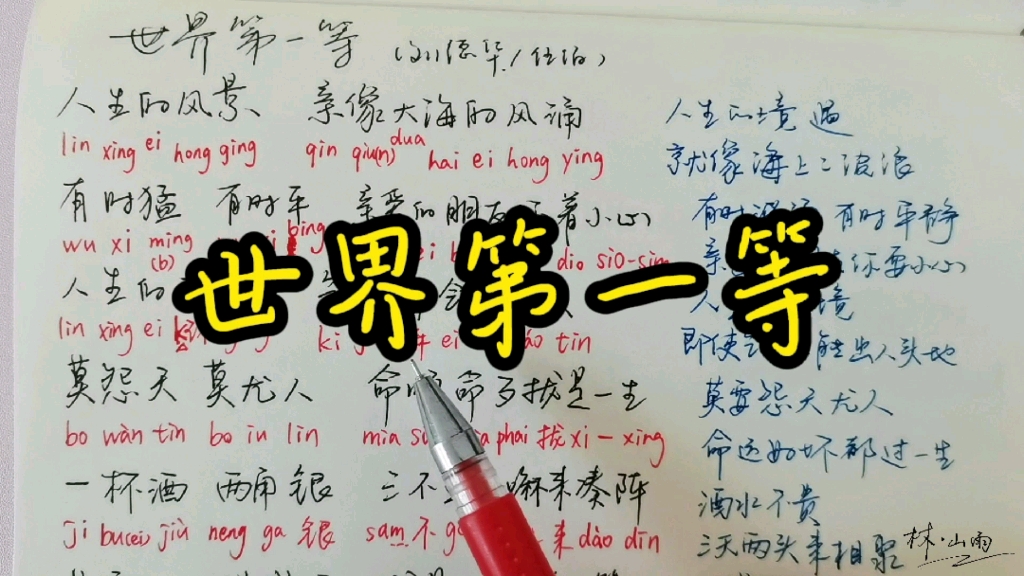 世界第一等(刘德华/伍佰)
人生的风景 亲像大海的风涌
lin xing ei hong ging qin qiu(n) dua hai ei hong ying
人生的境遇
就像海上的波浪
有时猛 有时平 亲爱的朋友 着小心
wu xi ming (b) bing ei dio sio-sim
有时 有时平静
亲 你要小心
世界第一等
人生的
lin xing ei ki ei tao tin
人 境
即使 能出人头地
莫怨天 莫尤人 命 命 拢是一生
bo wàn tin bo iu lin mia su phai 拢 xi 一 xing
莫要怨天尤人
命运好坏都过一生
一杯酒 两角银 三不 嘛来凑阵
ji bu(ei) jiù neng ga 银 sam 不 g 来 dào dīn
酒水不贵
三天两头来相聚
林·山雨